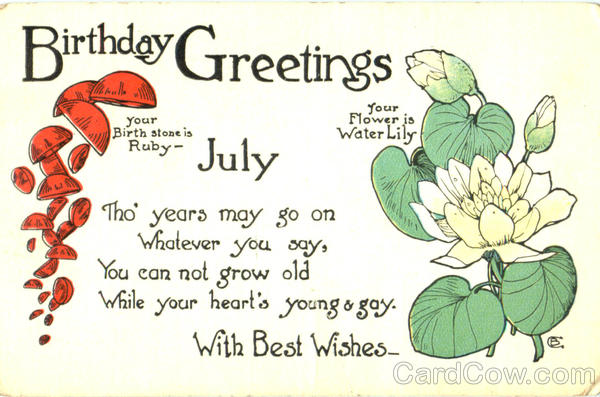 Birthday Greetings
Your
Birth stone is
Ruby–
Your
Flower is
Water Lily
July
Tho' years may go on
Whatever you say,
You can not grow old
While your heart's young & gay.
With Best Wishes–
CardCow.com